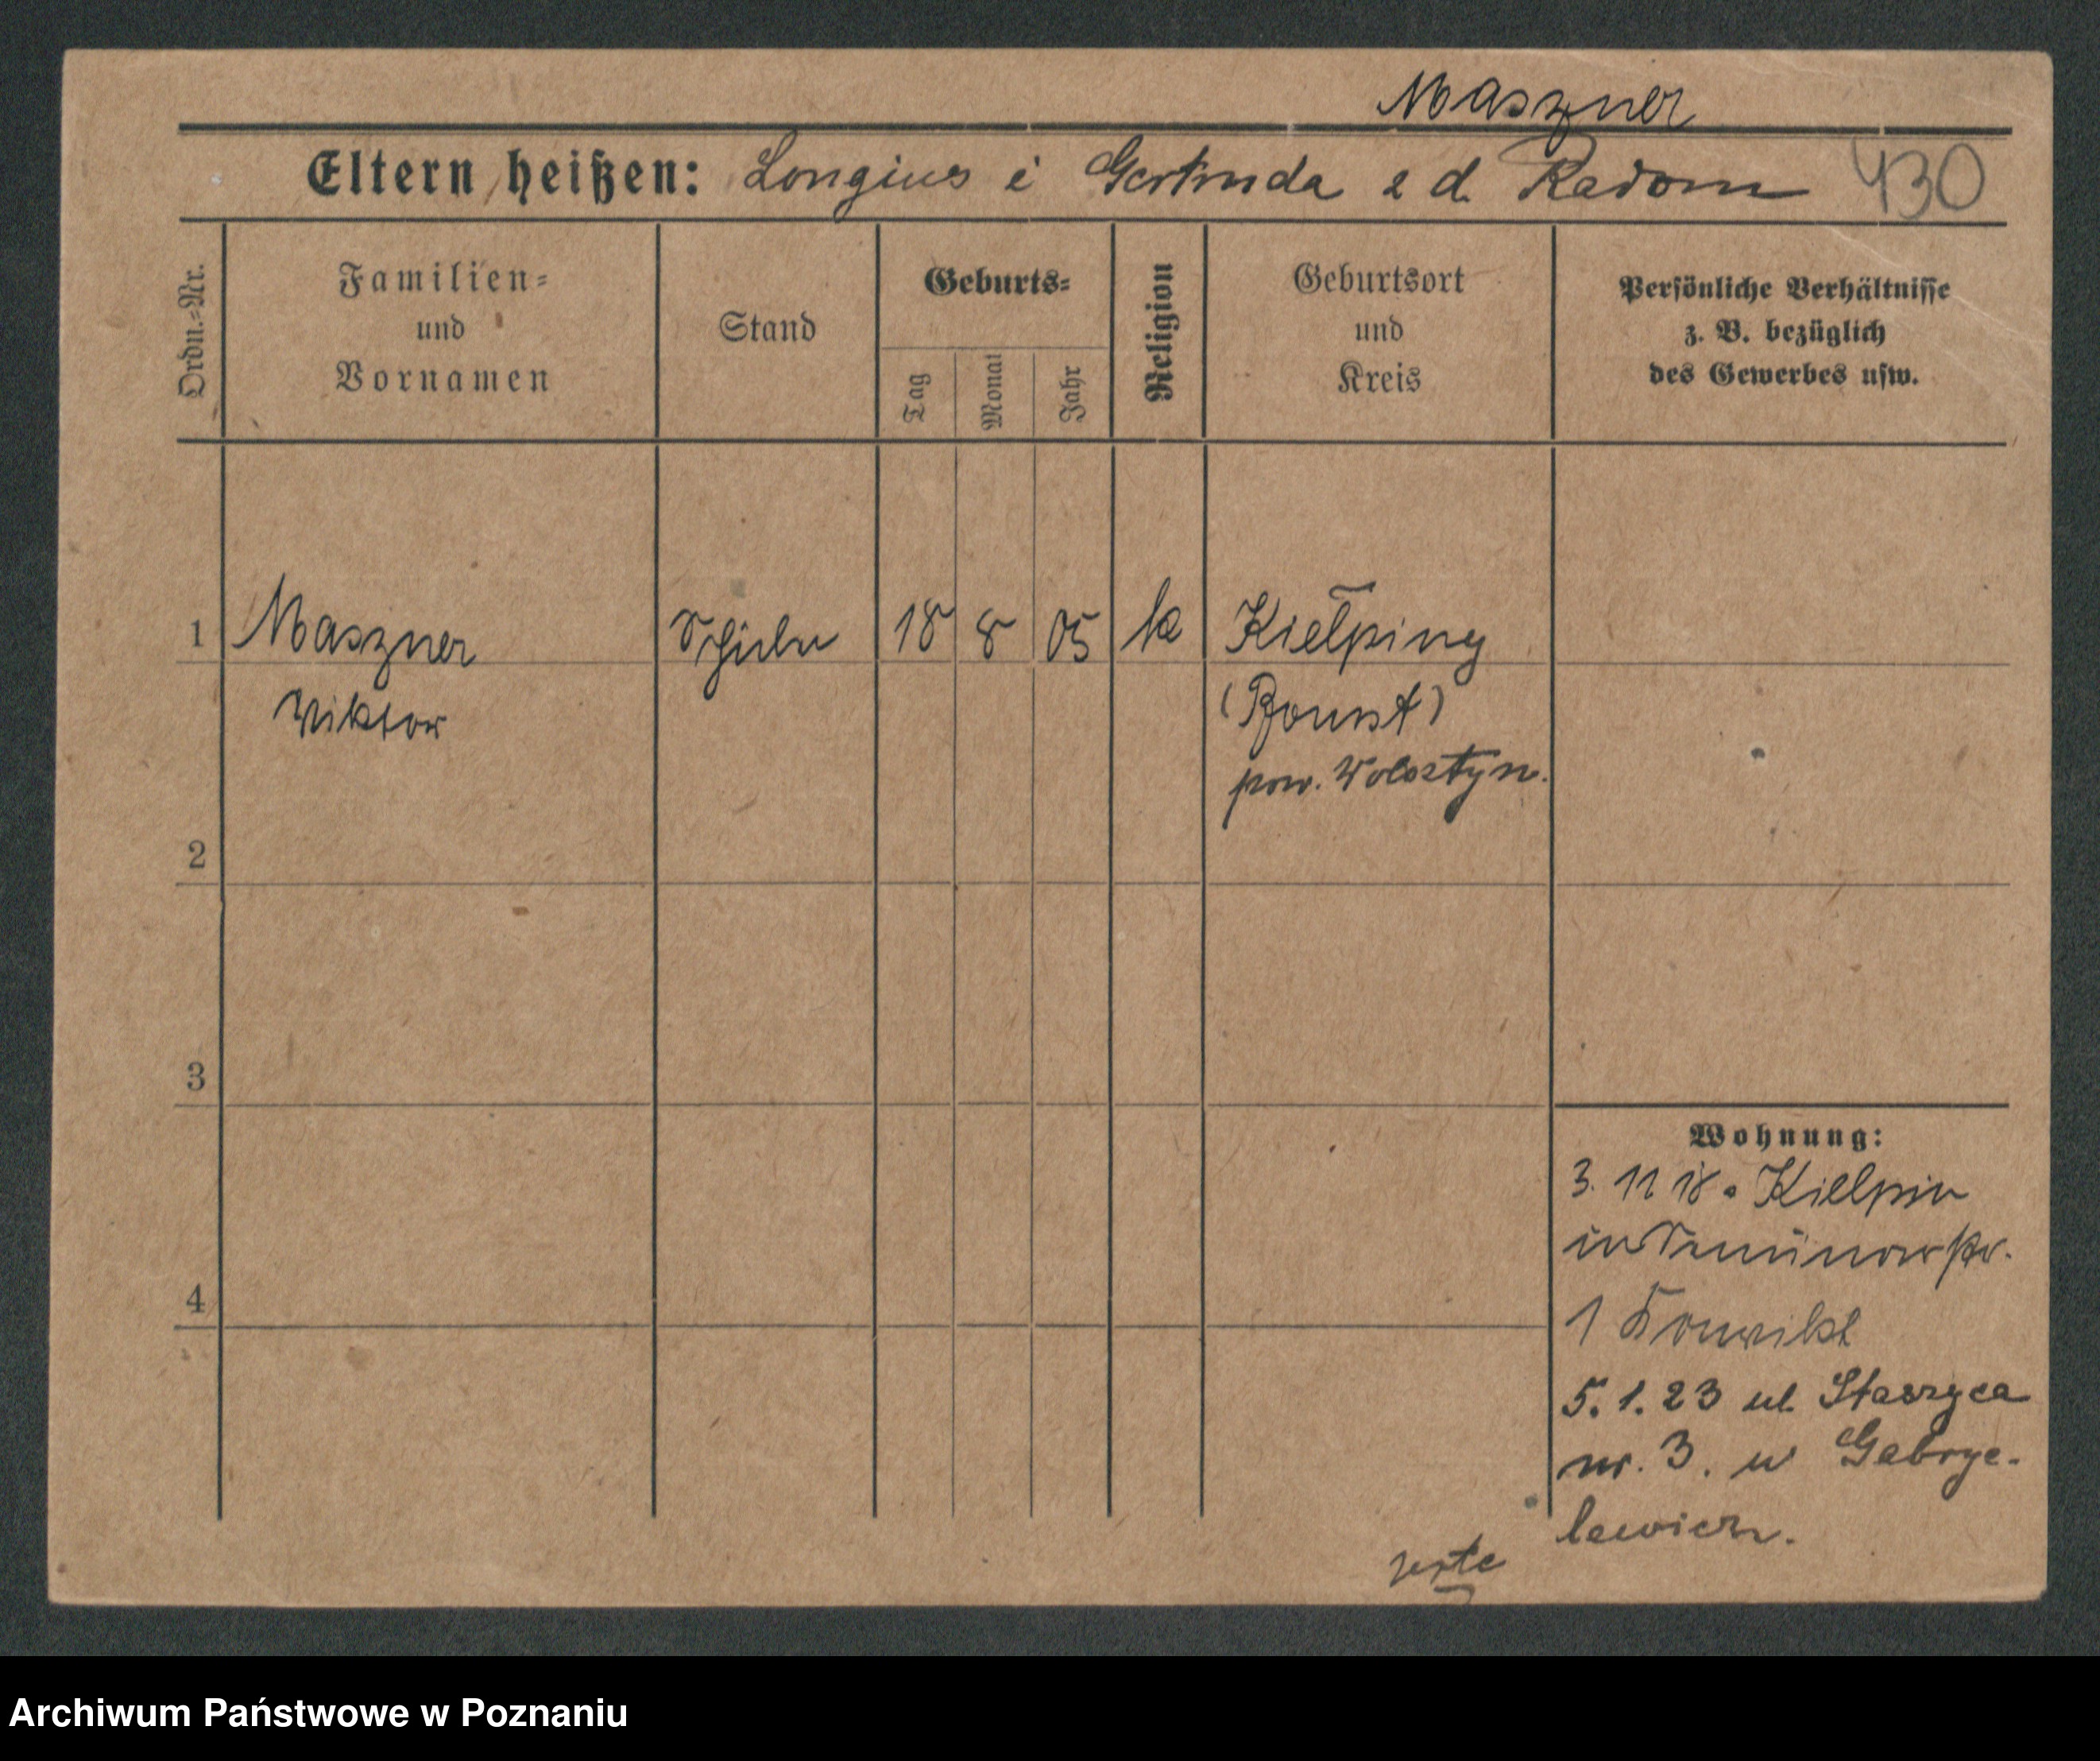 Maszner
Eltern heißen: Longius i Gertruda z d. Radom 430
Ordn.-Nr.
Familien-
und
Vornamen
Stand
Geburts-
Tag
Monat
Jahr
Religion
Geburtsort
und
Kreis
Persönliche Verhältnisse
z. B. bezüglich
des Gewerbes usw.
1 Maszner Schüler 18 8 05 k Kielpiny
Viktor
(Bomst)
pow. Wolsztyn.
2
3
4
Wohnung:
3. 11 18. Kielpin
in
1 Konvikt
5. 1. 23 ul. Staszyca
nr. 3. u Gabrye-
lewicza.
Archiwum Państwowe w Poznaniu